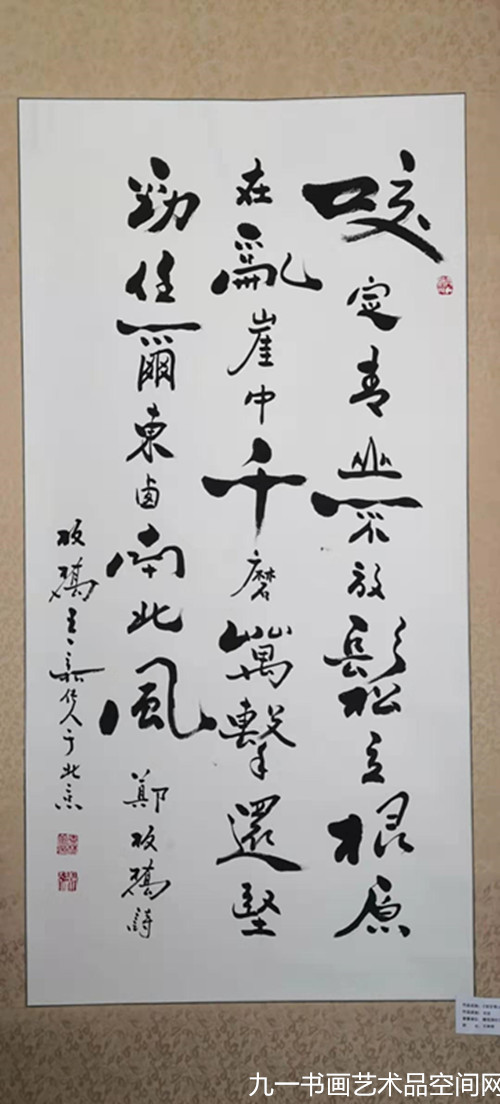 咬定青山不放鬆立根原
在亂崖中千磨萬擊還堅
勁任爾東卤南北風 鄭板橋詩
板橋 人于北京
九一书画艺术品空间网